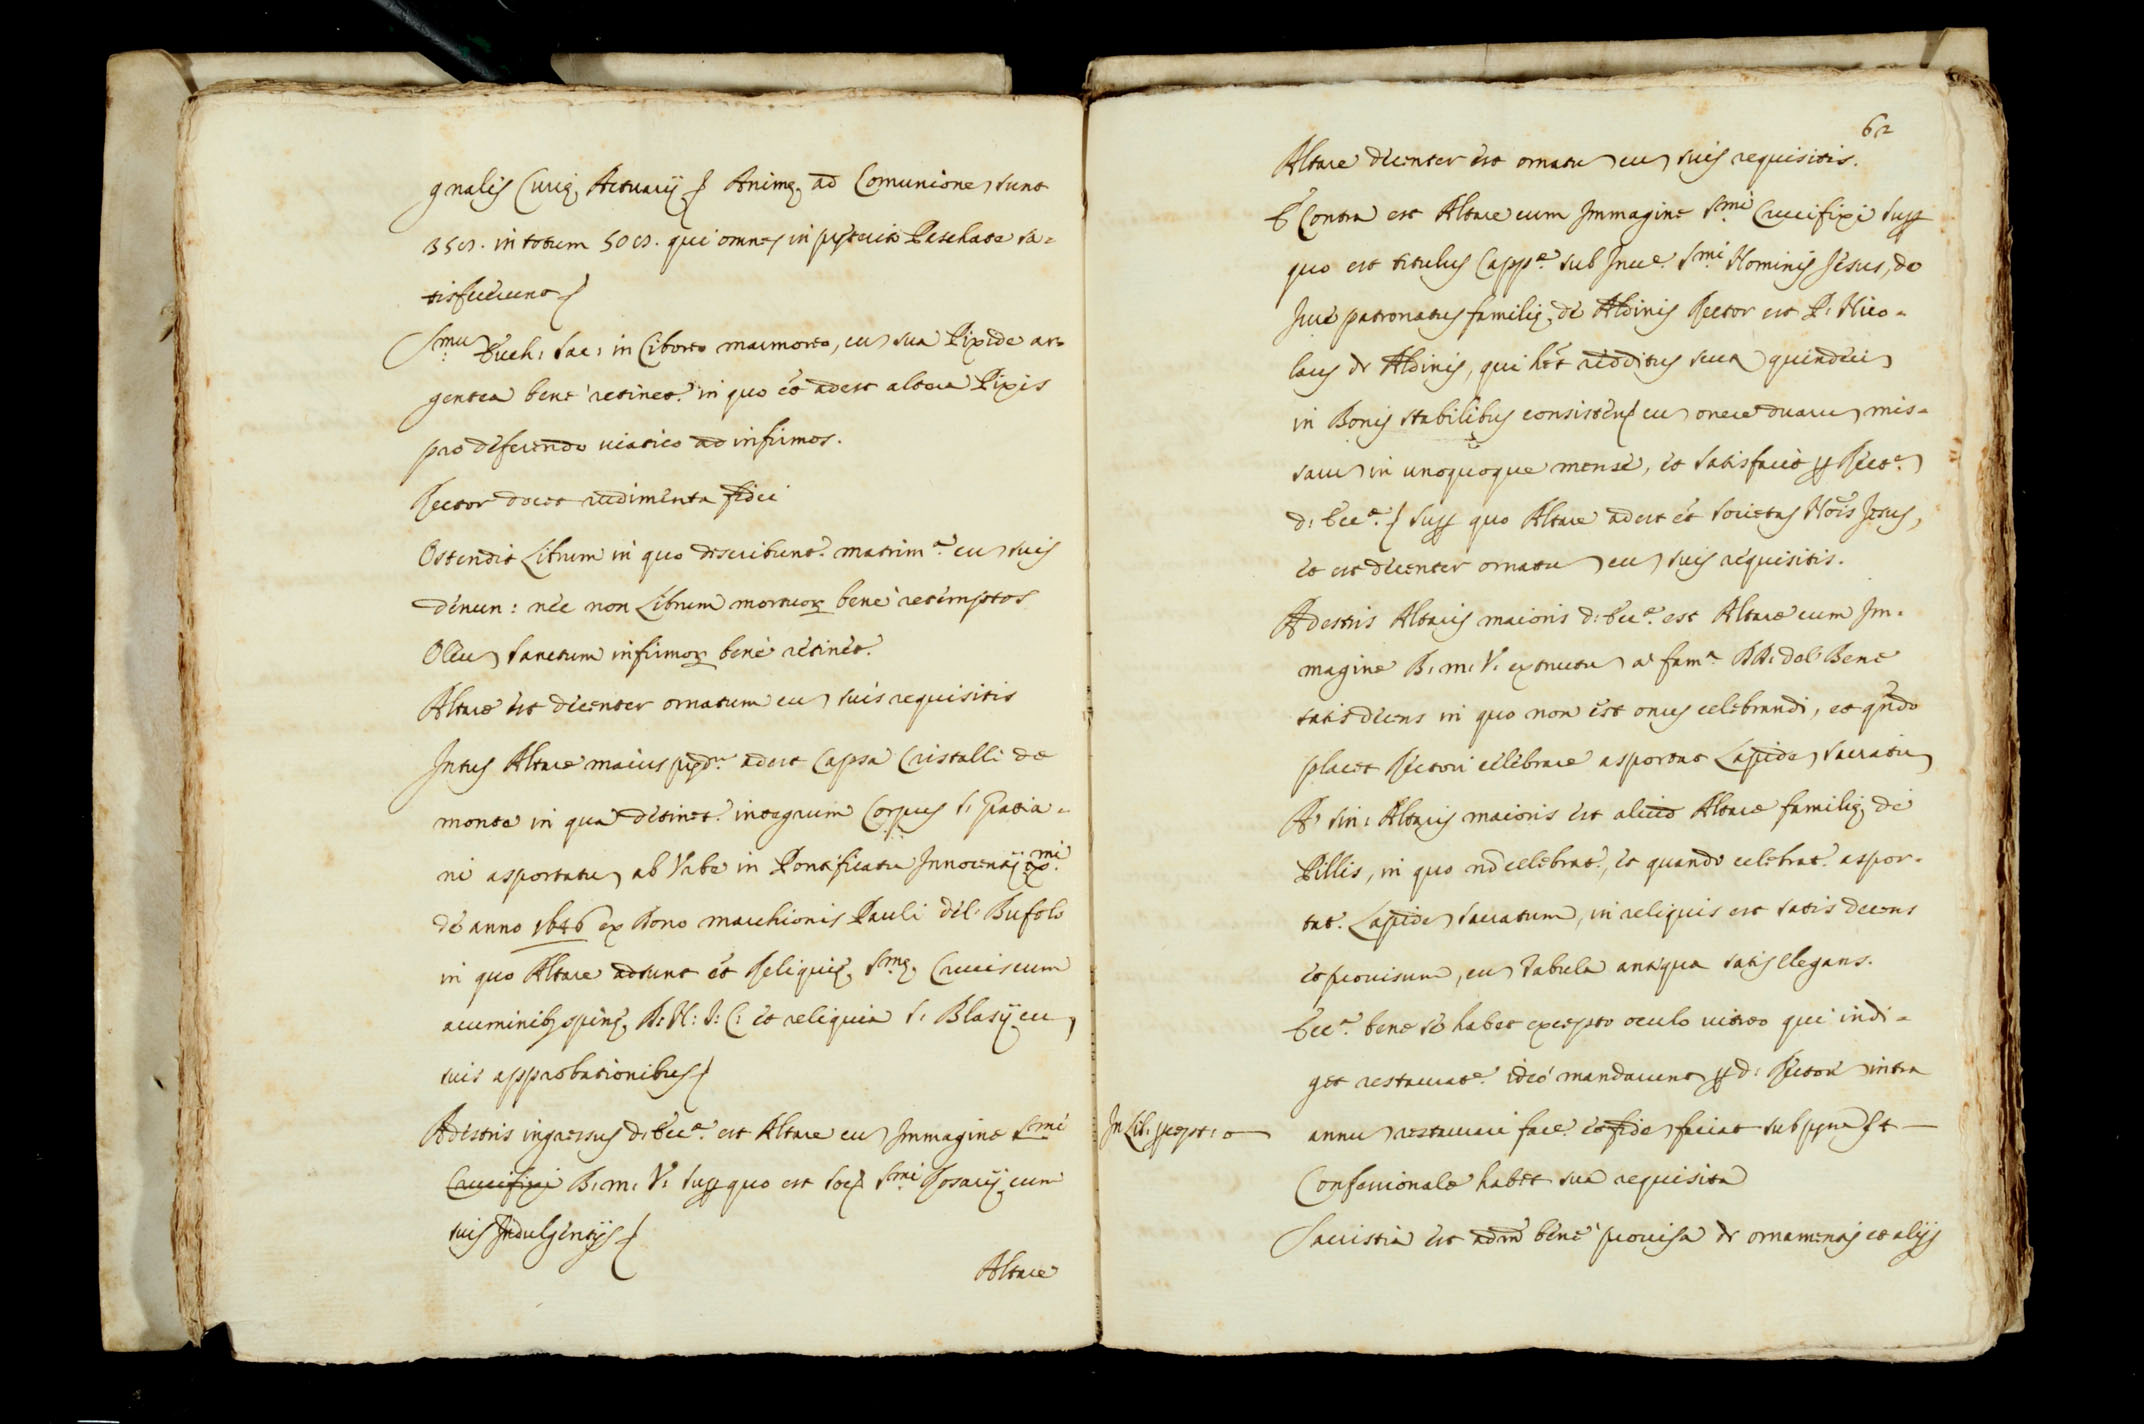 gnalis Curię Actuarij Animę ad Comunione sunt
350. in totum 500. qui omnes in preterito Paschate sa-
tisfecerunt
Smu Euch: Sac: in Ciborio marmoreo, cu sua Pixide ar-
gentea bene retinet. in quo et adest altera Pixis
pro deferendo viatico ad infirmos.
Rector docet rudimenta fidei
Ostendit Librum in quo describunt. matrim.a cu suis
denun: nec non Librum mortuor bene retemptos
Oleu Sanctum infirmor bene retinet.
Altare est decenter ornatum cu suis requisitis
Intus Altare maius pred.m adest Capsa Cristalli de
monte in qua detinet. integrum Corpus S. Gratia-
ni asportatu ab Urbe in Pontificatu Innocentij Xmi
de anno 1646 ex Dono marchionis Pauli del Bufolo
in quo Altare adsunt et Reliquię Smę Crucis cum
acuminibus spinę D: N: J: C: et reliquia S. Blasij cu
suis approbationibus
A dextris ingressus d: Ecc.e est Altare cu Immagine Smi
Crucifixi B. m. V. supr quo est Soc. Smi Rosarij cum
suis Indulgentijs
Altare
62
Altare decenter est ornatu cu suis requisitis.
E Contra est Altare cum Immagine Smi Crucifixi supr
quo est titulus Capp.e sub Inue. Smi Nominis Jesus, de
Jure patronatus familię de Aldinis Rector est D. Nico-
laus de Aldinis, qui het redditus scuta quindeci
in Bonis stabilibus consisten cu onere duaru mis-
saru in unoquoque mense, et satisfacit p Rect.
d: Ecc.e supr quo Altare adest et societas Nois Jesus,
et est decenter ornatu cu suis requisitis.
A dextris Altaris maioris d: Ecc.e est Altare cum Im-
magine B. m. V. extructu a fam.a DD. del Bene
satis decens in quo non est onus celebrandi, et qndo
placet Rectori celebrare asportat Lapide sacratu
A sin: Altaris maioris est aliud Altare familię de
Pillis, in quo no celebrat., et quando celebrat. aspor-
tat. Lapide sacratum, in reliquis est satis decens
et provisum, cu Tabula antiqua satis elegans.
Ecc.a bene se habet excepto oculo vitreo qui indi-
get restaurat.e ideo mandarunt p d: Rectore intra
In Lib. precept: o
annu restaurari face. et fide faciat sub pena st
Confessionale habet sua requisita
Sacristia est adm bene provisa de ornamentis et alijs